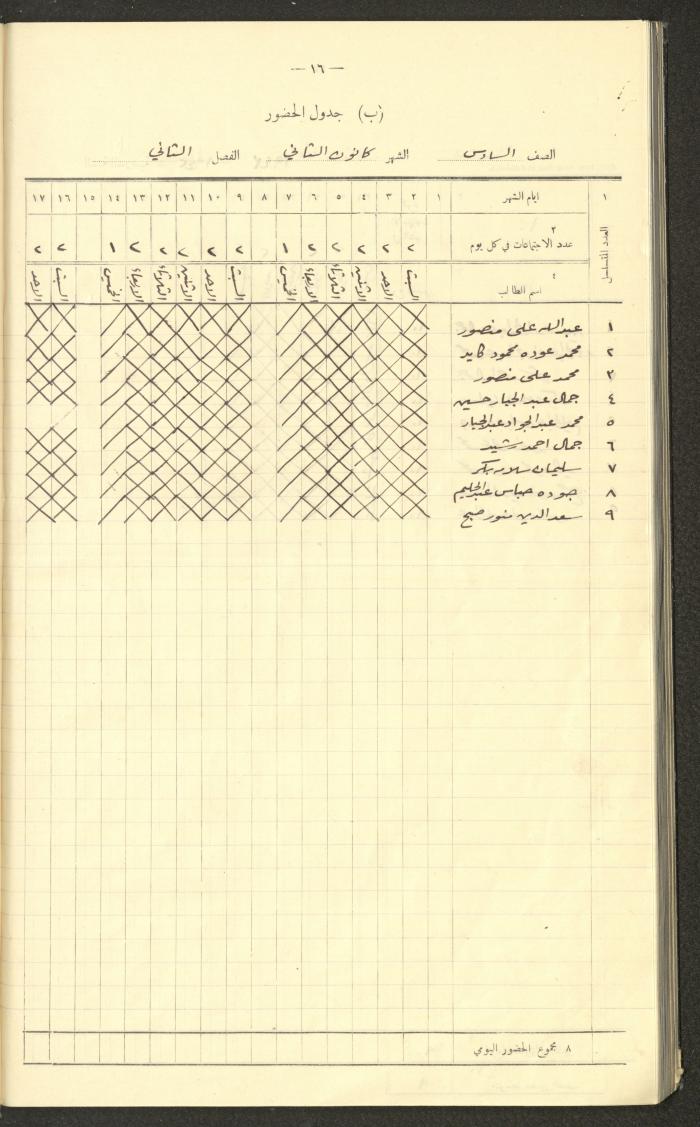 — ١٦ —
(ب) جدول الحضور
الصف السادس الشهر كانون الثاني الفصل الثاني
١ ايام الشهر ١ ٢ ٣ ٤ ٥ ٦ ٧ ٨ ٩ ١٠ ١١ ١٢ ١٣ ١٤ ١٥ ١٦ ١٧
العدد المتسلسل
٣
عدد الاجتماعات في كل يوم ٢ ٢ ٢ ٢ ٢ ١ ٢ ٢ ٢ ٢ ٢ ١ ٢ ٢
٤
اسم الطالب السبت الاحد الاثنين الثلاثاء الاربعاء الخميس السبت الاحد الاثنين الثلاثاء الاربعاء الخميس السبت الاحد
١ عبدالله علي منصور
٢ محمد عوده محمود كايد
٣ محمد علي منصور
٤ جمال عبد الجبار حسين
٥ محمد عبد الجواد عبدالجبار
٦ جمال احمد رشيد
٧ سليمان بكر
٨ جوده عباس عبدالحليم
٩ سعد الدين منور صبح
٨ مجموع الحضور اليومي